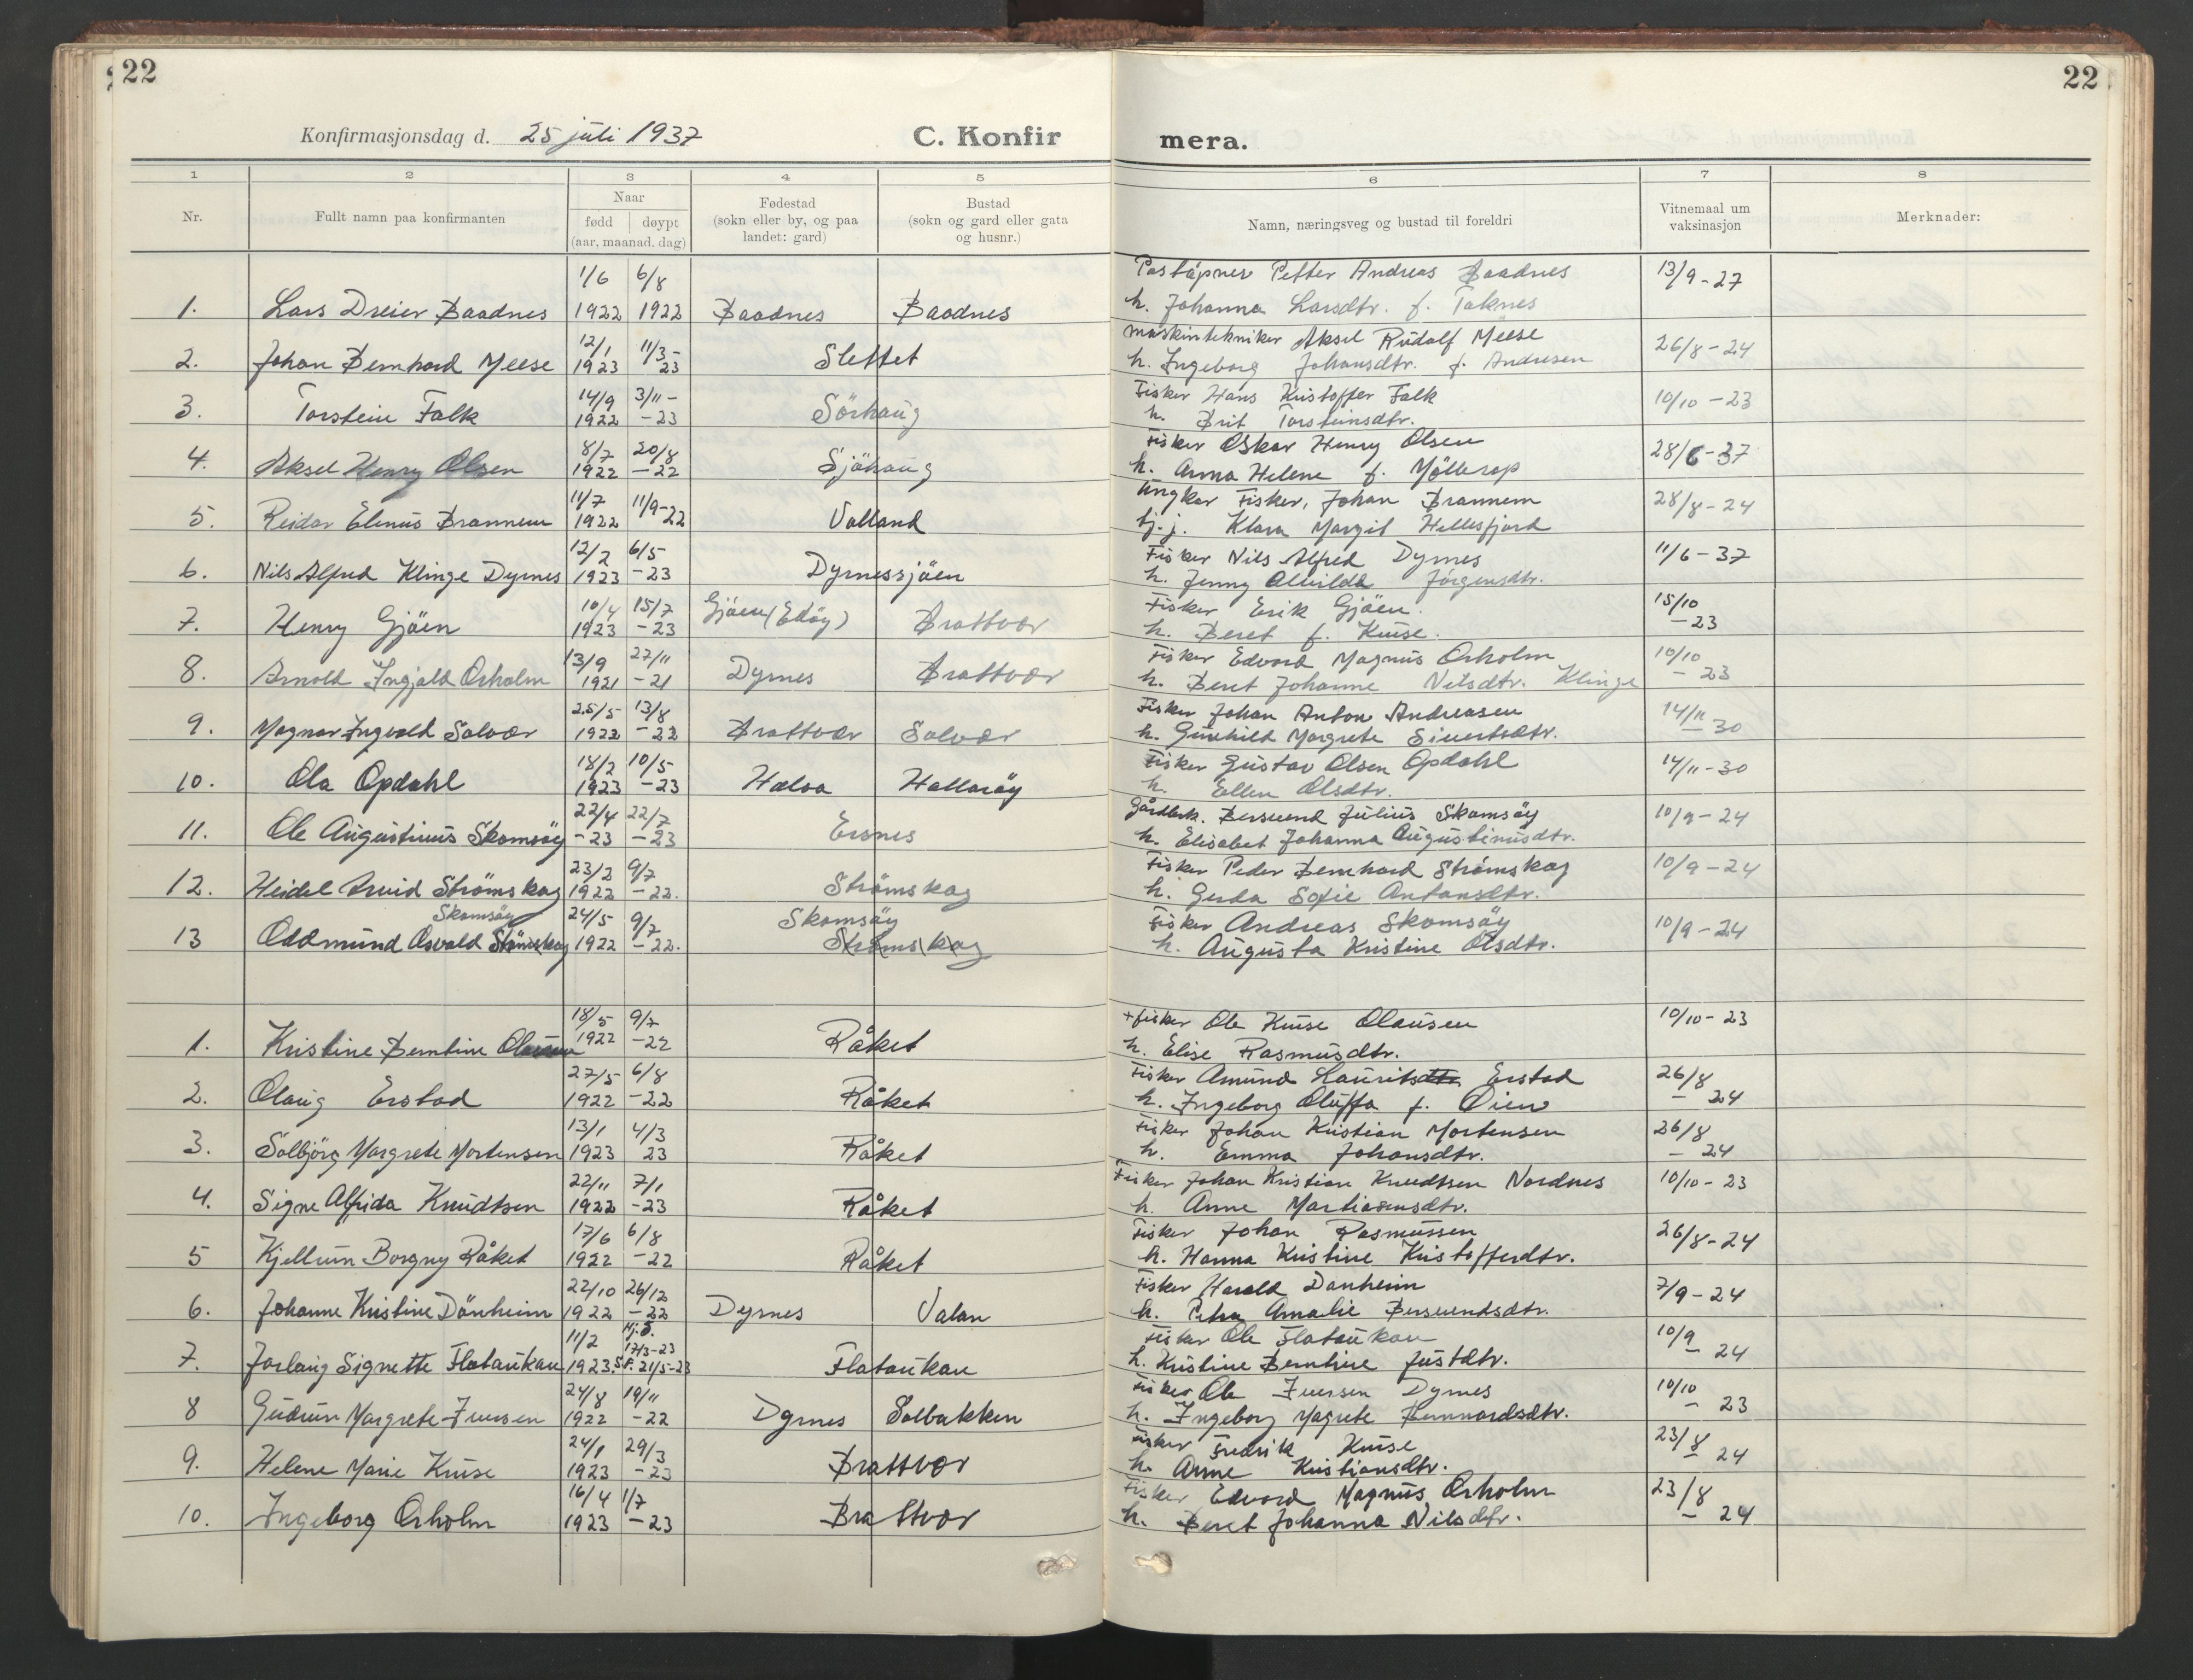 22
22
Konfirmasjonsdag d. 25 juli 1937
C. Konfir
mera.
1 2 3 4 5 6 7 8
Nr.
Fullt namn paa konfirmanten
Naar
fødd døypt
(aar, maanad. dag)
Fødestad
(sokn eller by, og paa
landet: gard)
Bustad
(sokn og gard eller gata
og husnr.)
Namn, næringsveg og bustad til foreldri
Vitnemaal um
vaksinasjon
Merknader:
1/6 6/8 Poståpner Petter Andreas Baadnes 13/9-27
1. Lars Dreier Baadnes 1922 1922 Baadnes Baadnes h. Johanna Larsdtr. f. Taknes
12/1 11/3- maskintekniker Aksel Rudolf Meese 26/8-24
2. Johan Bernhard Meese 1923 23 Slettet h. Ingeborg Johansdtr. f. Andresen
14/9 3/11- Fisker Hans Kristoffer Falk 10/10-23
3. Torstein Falk 1922 -23 Sörhaug h. Brit Torsteinsdtr.
8/7 20/8 Fisker Oskar Henry Olsen 28/6-37
4. Aksel Henry Olsen 1922 -22 Sjöhaug h. Anna Helene f. Möllerop
11/7 11/9-22 Ungkar Fisker, Johan Brannem 28/8-24
5. Reidar Elenus Brannem 1922 Valland tj.j. Klara Margit Hellesfjord
12/2 6/5 Fisker Nils Alfred Dyrnes 11/6-37
6. Nils Alfred Klinge Dyrnes 1923 -23 Dyrnessjöen h. Jenny Alvilda Jörgensdtr.
10/4 15/7 Gjöen (Edöy) Fisker Erik Gjöen. 15/10
7. Henry Gjöen 1923 -23 Brattvær h. Beret f. Kruse. -23
13/9 27/11 Fisker Edvard Magnus Orholm 10/10
8. Arnold Ingjald Orholm 1921 -21 Dyrnes Brattvær h. Beret Johanne Nilsdtr. Klinge - 23
25/5 13/8 Fisker Johan Anton Andreasen 14/11
9. Magnar Ingvald Solvær 1922 -22 Brattvær Solvær h. Gunhild Margrete Sivertsdtr. - 30
18/2 10/5 Fisker Gustav Olsen Opdahl 14/11-30
10. Ola Opdahl 1923 -23 Halsa Hallaröy h. Ellen Olsdtr.
22/4 22/7 Gårdbrk. Bersvend Julius Skomsöy 10/9-24
11. Ole Augustinus Skomsöy -23 -23 Ersnes h. Elisabet Johanna Augustinusdtr.
23/2 9/7 Fisker Peder Bernhard Strömskag 10/9-24
12. Heidel Arvid Strömskag 1922 -22. Strömskag h. Gerda Sofie Antonsdtr.
Skomsöy 24/5 9/7 Skomsöy Fisker Andreas Skomsöy 10/9-24
13 Oddmund Osvald Strömskag 1922 -22. Strömskag h. Augusta Kristine Olsdtr.
18/5 9/7 + fisker Ole Kruse Olausen 10/10-23
1. Kristine Berntine Olausen 1922 -22 Råket h. Elise Rasmusdtr.
27/5 6/8 Fisker Amund Lauritsdtr. Erstad 26/8
2. Olaug Erstad 1922 -22 Råket h. Ingeborg Oluffa f. Öien - 24
13/1 4/3 Fisker Johan Kristian Mortensen 26/8
3. Solbjörg Margrete Mortensen 1923 23 Råket h. Emma Johansdtr. - 24
22/11 7/1 Fisker Johan Kristian Knudtsen Nordnes 10/10-23
4. Signe Alfrida Knudtsen 1922 -23 Råket h. Anne Martiasensdtr.
17/6 6/8 Fisker Johan Rasmussen 26/8-24
5 Kjellrun Borgny Råket 1922 -22 Råket h. Hanna Kristine Kristofferdtr.
22/10 26/12 Fisker Harald Danheim 7/9-24
6. Johanne Kristine Dönheim 1922 -22 Dyrnes Valan h. Petra Amalie Bersvendsdtr.
11/2 Hj.d. 17/3-23 Fisker Ole Flataukan 10/9
7. Jorlaug Signette Flataukan 1923. S.f. 21/5-23 Flataukan h. Kristine Berntine Justdtr. - 24
24/8 19/11 Fisker Ole Iversen Dyrnes 10/10
8 Gudrun Margrete Iversen 1922 -22 Dyrnes Solbakken h. Ingeborg Magrete Bernnardsdtr. - 23
24/1 29/3 Fisker Fredrik Kruse 23/8
9. Helene Marie Kruse 1923 -23 Brattvær h. Anne Kristiansdtr. - 24
16/4 1/7 Fisker Edvard Magnus Orholm 23/8
10. Ingeborg Orholm 1923 -23 Brattvær h. Beret Johanna Nilsdtr. - 24